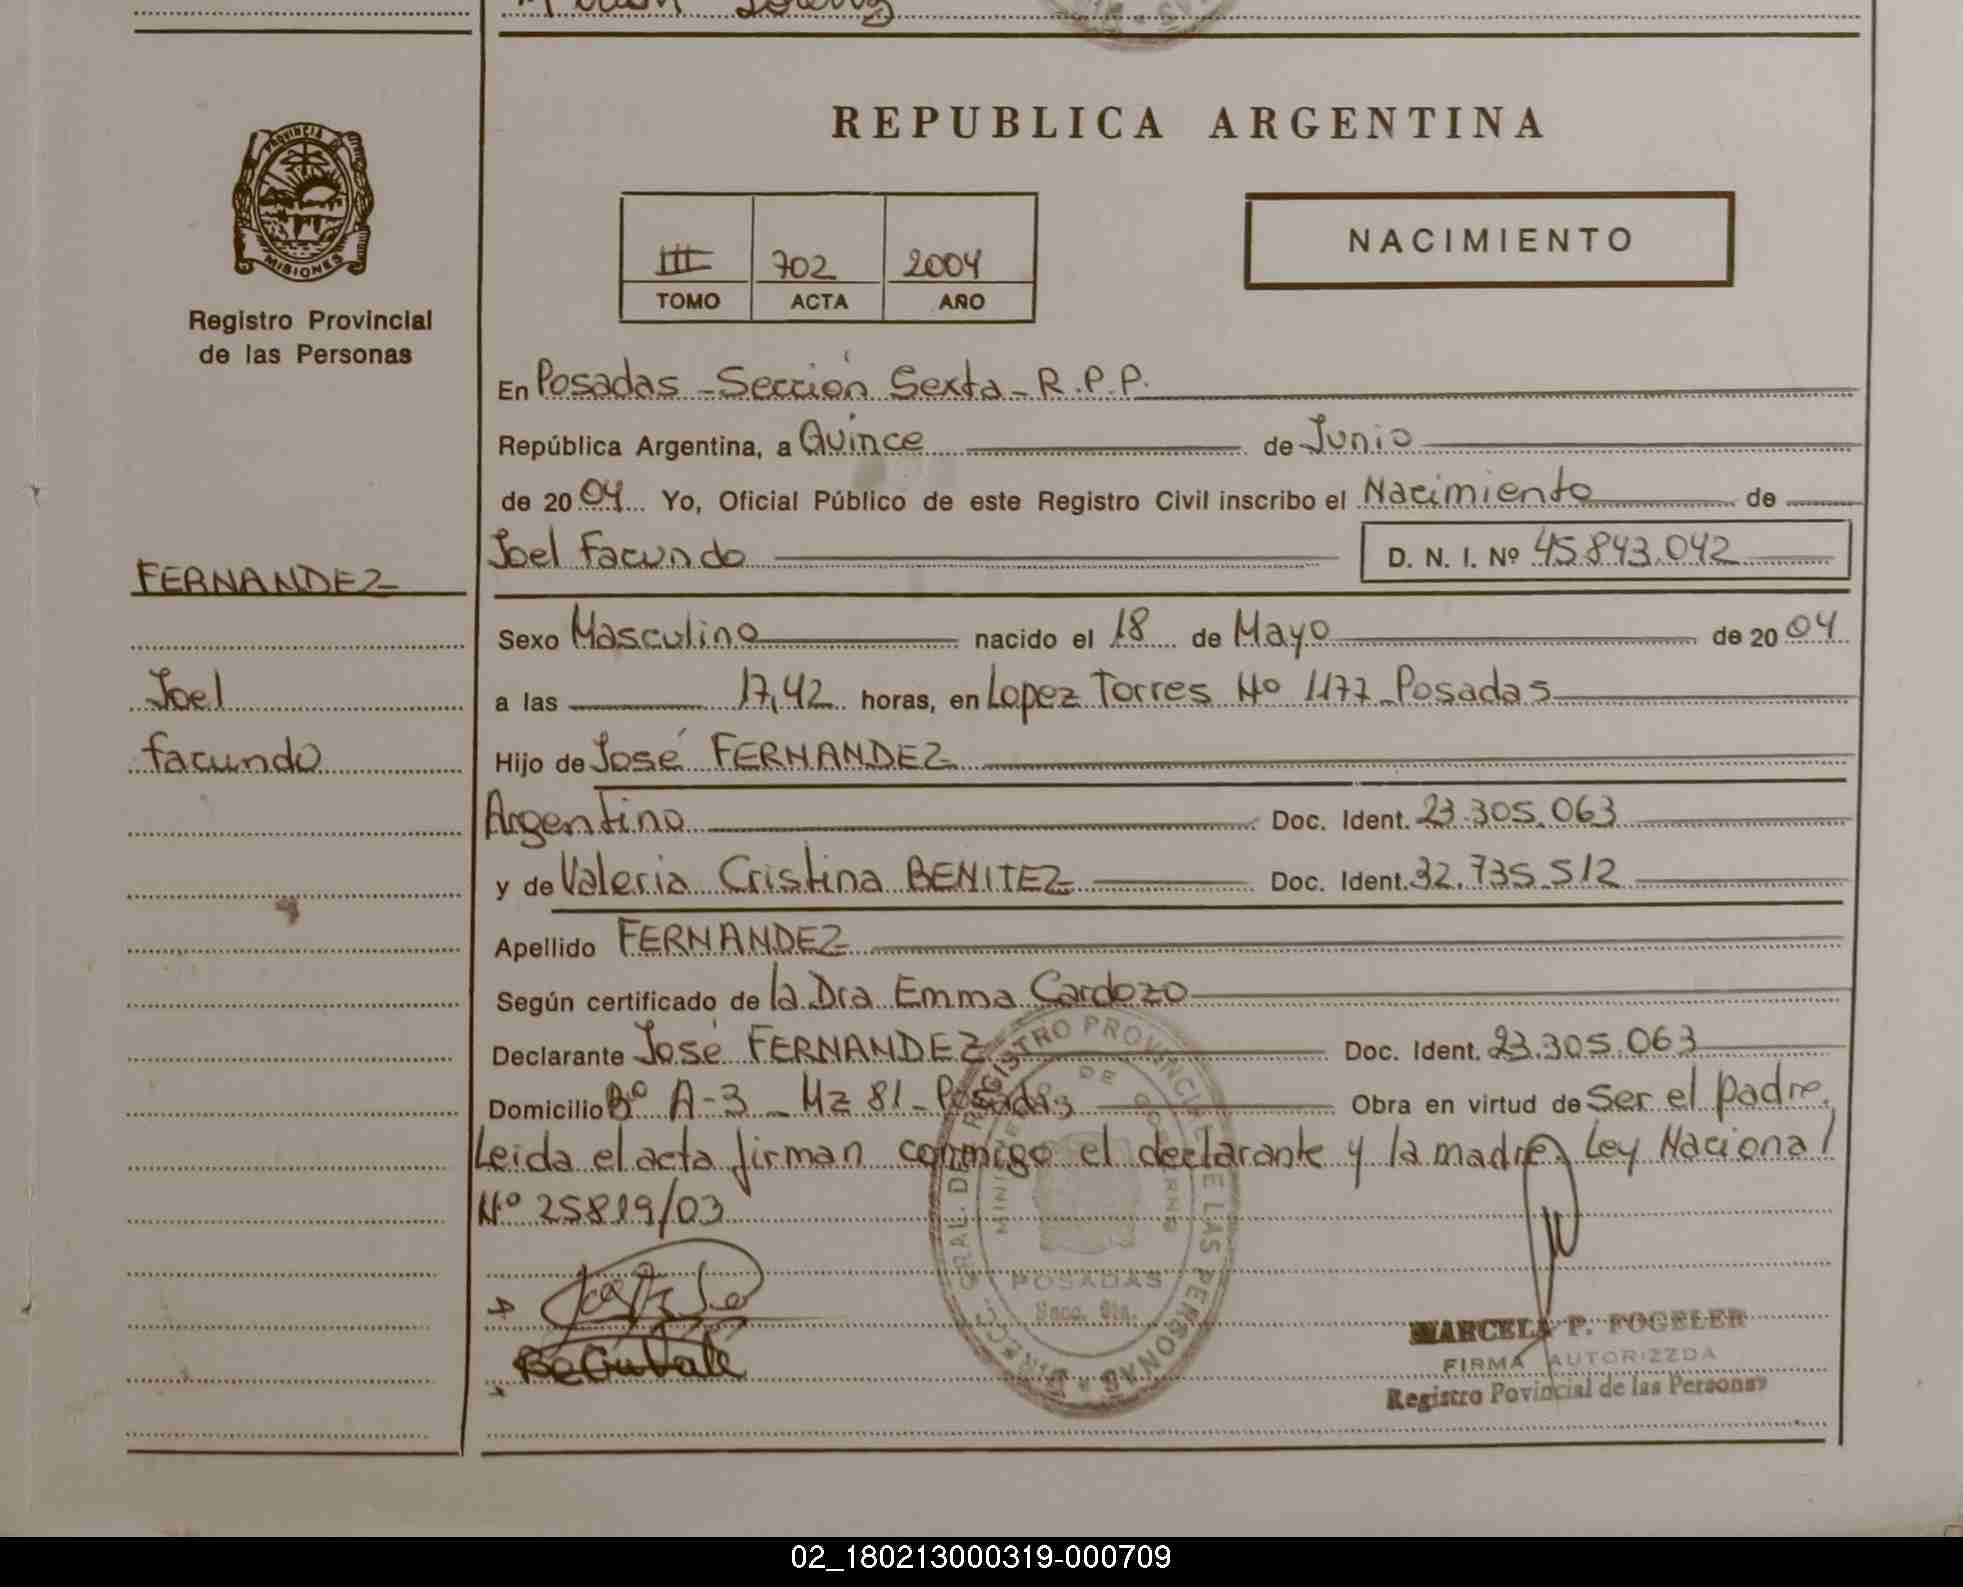 PROVINCIA DE
MISIONES
Registro Provincial
de las Personas
FERNANDEZ
Joel
facundo
REPUBLICA ARGENTINA
III 702 2004
TOMO ACTA AÑO
NACIMIENTO
En Posadas - Sección Sexta - R.P.P.
República Argentina, a Quince de Junio
de 20 04 Yo, Oficial Público de este Registro Civil inscribo el Nacimiento de
Joel Facundo D. N. I. Nº 45.843.042
Sexo Masculino nacido el 18 de Mayo de 20 04
a las 17,42 horas, en Lopez Torres Nº 1177 - Posadas
Hijo de José FERNANDEZ
Argentino Doc. Ident. 23.305.063
y de Valeria Cristina BENITEZ Doc. Ident. 32.735.512
Apellido FERNANDEZ
Según certificado de la Dra Emma Cardozo
Declarante José FERNANDEZ Doc. Ident. 23.305.063
Domicilio Bº A-3 - Mz 81 - Posadas Obra en virtud de ser el padre.
Leida el acta firman conmigo el declarante y la madre Ley Nacional
Nº 25819/03
DIRECC. GRAL. DEL REGISTRO PROVINCIAL DE LAS PERSONAS
MINISTERIO DE GOBIERNO
POSADAS
Secc. 6ta.
MARCELA P. FOGELER
FIRMA AUTORIZZDA
Registro Povincial de las Personas
02_180213000319-000709